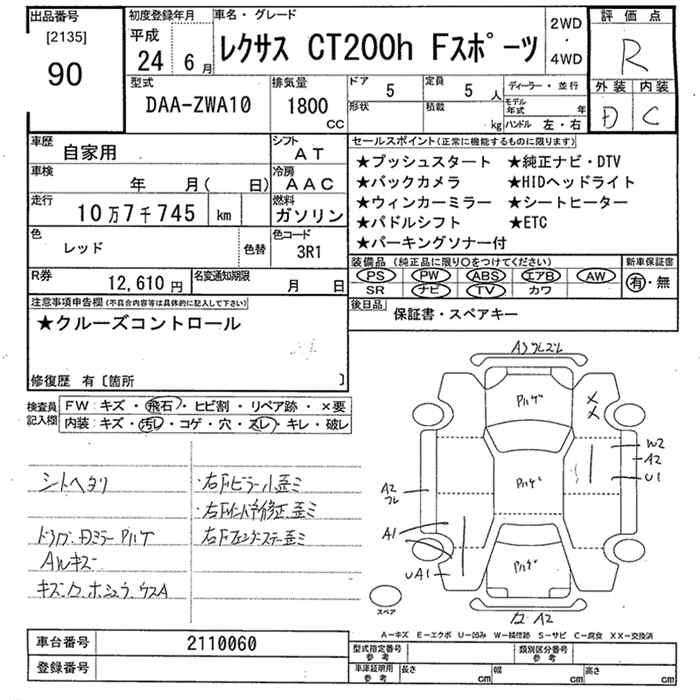 出品番号
[2135]
90
初度登録年月
平成
24 6月
車名・グレード
レクサス CT200h Fスポーツ
2WD
・
4WD
評価点
R
外装 内装
D C
型式
DAA-ZWA10
排気量
1800
CC
ドア
5
定員
5 人
形状
積載
kg
ディーラー・並行
モデル年式 年
ハンドル 左・右
車歴
自家用
シフト
AT
車検
年 月( 日)
冷房
AAC
走行
10万7千745 km
燃料
ガソリン
色
レッド
色替
色コード
3R1
R券
12,610円
名変通知期限
月 日
セールスポイント(正常に機能するものに限ります)
★プッシュスタート ★純正ナビ・DTV
★バックカメラ ★HIDヘッドライト
★ウィンカーミラー ★シートヒーター
★パドルシフト ★ETC
★パーキングソナー付
装備品(純正品に限り○をつけてください)
PS PW ABS エアB AW
SR ナビ TV カワ
新車保証書
有・無
後日品
保証書・スペアキー
注意事項申告欄(不具合内容等は具体的に記入して下さい)
★クルーズコントロール
修復歴 有〔箇所 〕
検査員記入欄
FW:キズ・飛石・ヒビ割・リペア跡・×要
内装:キズ・汚レ・コゲ・穴・スレ・キレ・破レ
シートヘタリ
ドライブ、Dミラー Pハゲ
Aルキズ
右Fピラー小歪ミ
右Fインナー修正、歪ミ
右Fフェンダーステー歪ミ
Pハゲ
Pハゲ
Pハゲ
W2
A2
U1
A2
A1
UA1
A2
スペア
A-キズ E-エクボ U-凹み W-補修跡 S-サビ C-腐食 XX-交換済
車台番号
2110060
登録番号
型式指定番号
参考
類別区分番号
参考
車庫証明用
参考
長さ cm
幅 cm
高さ cm